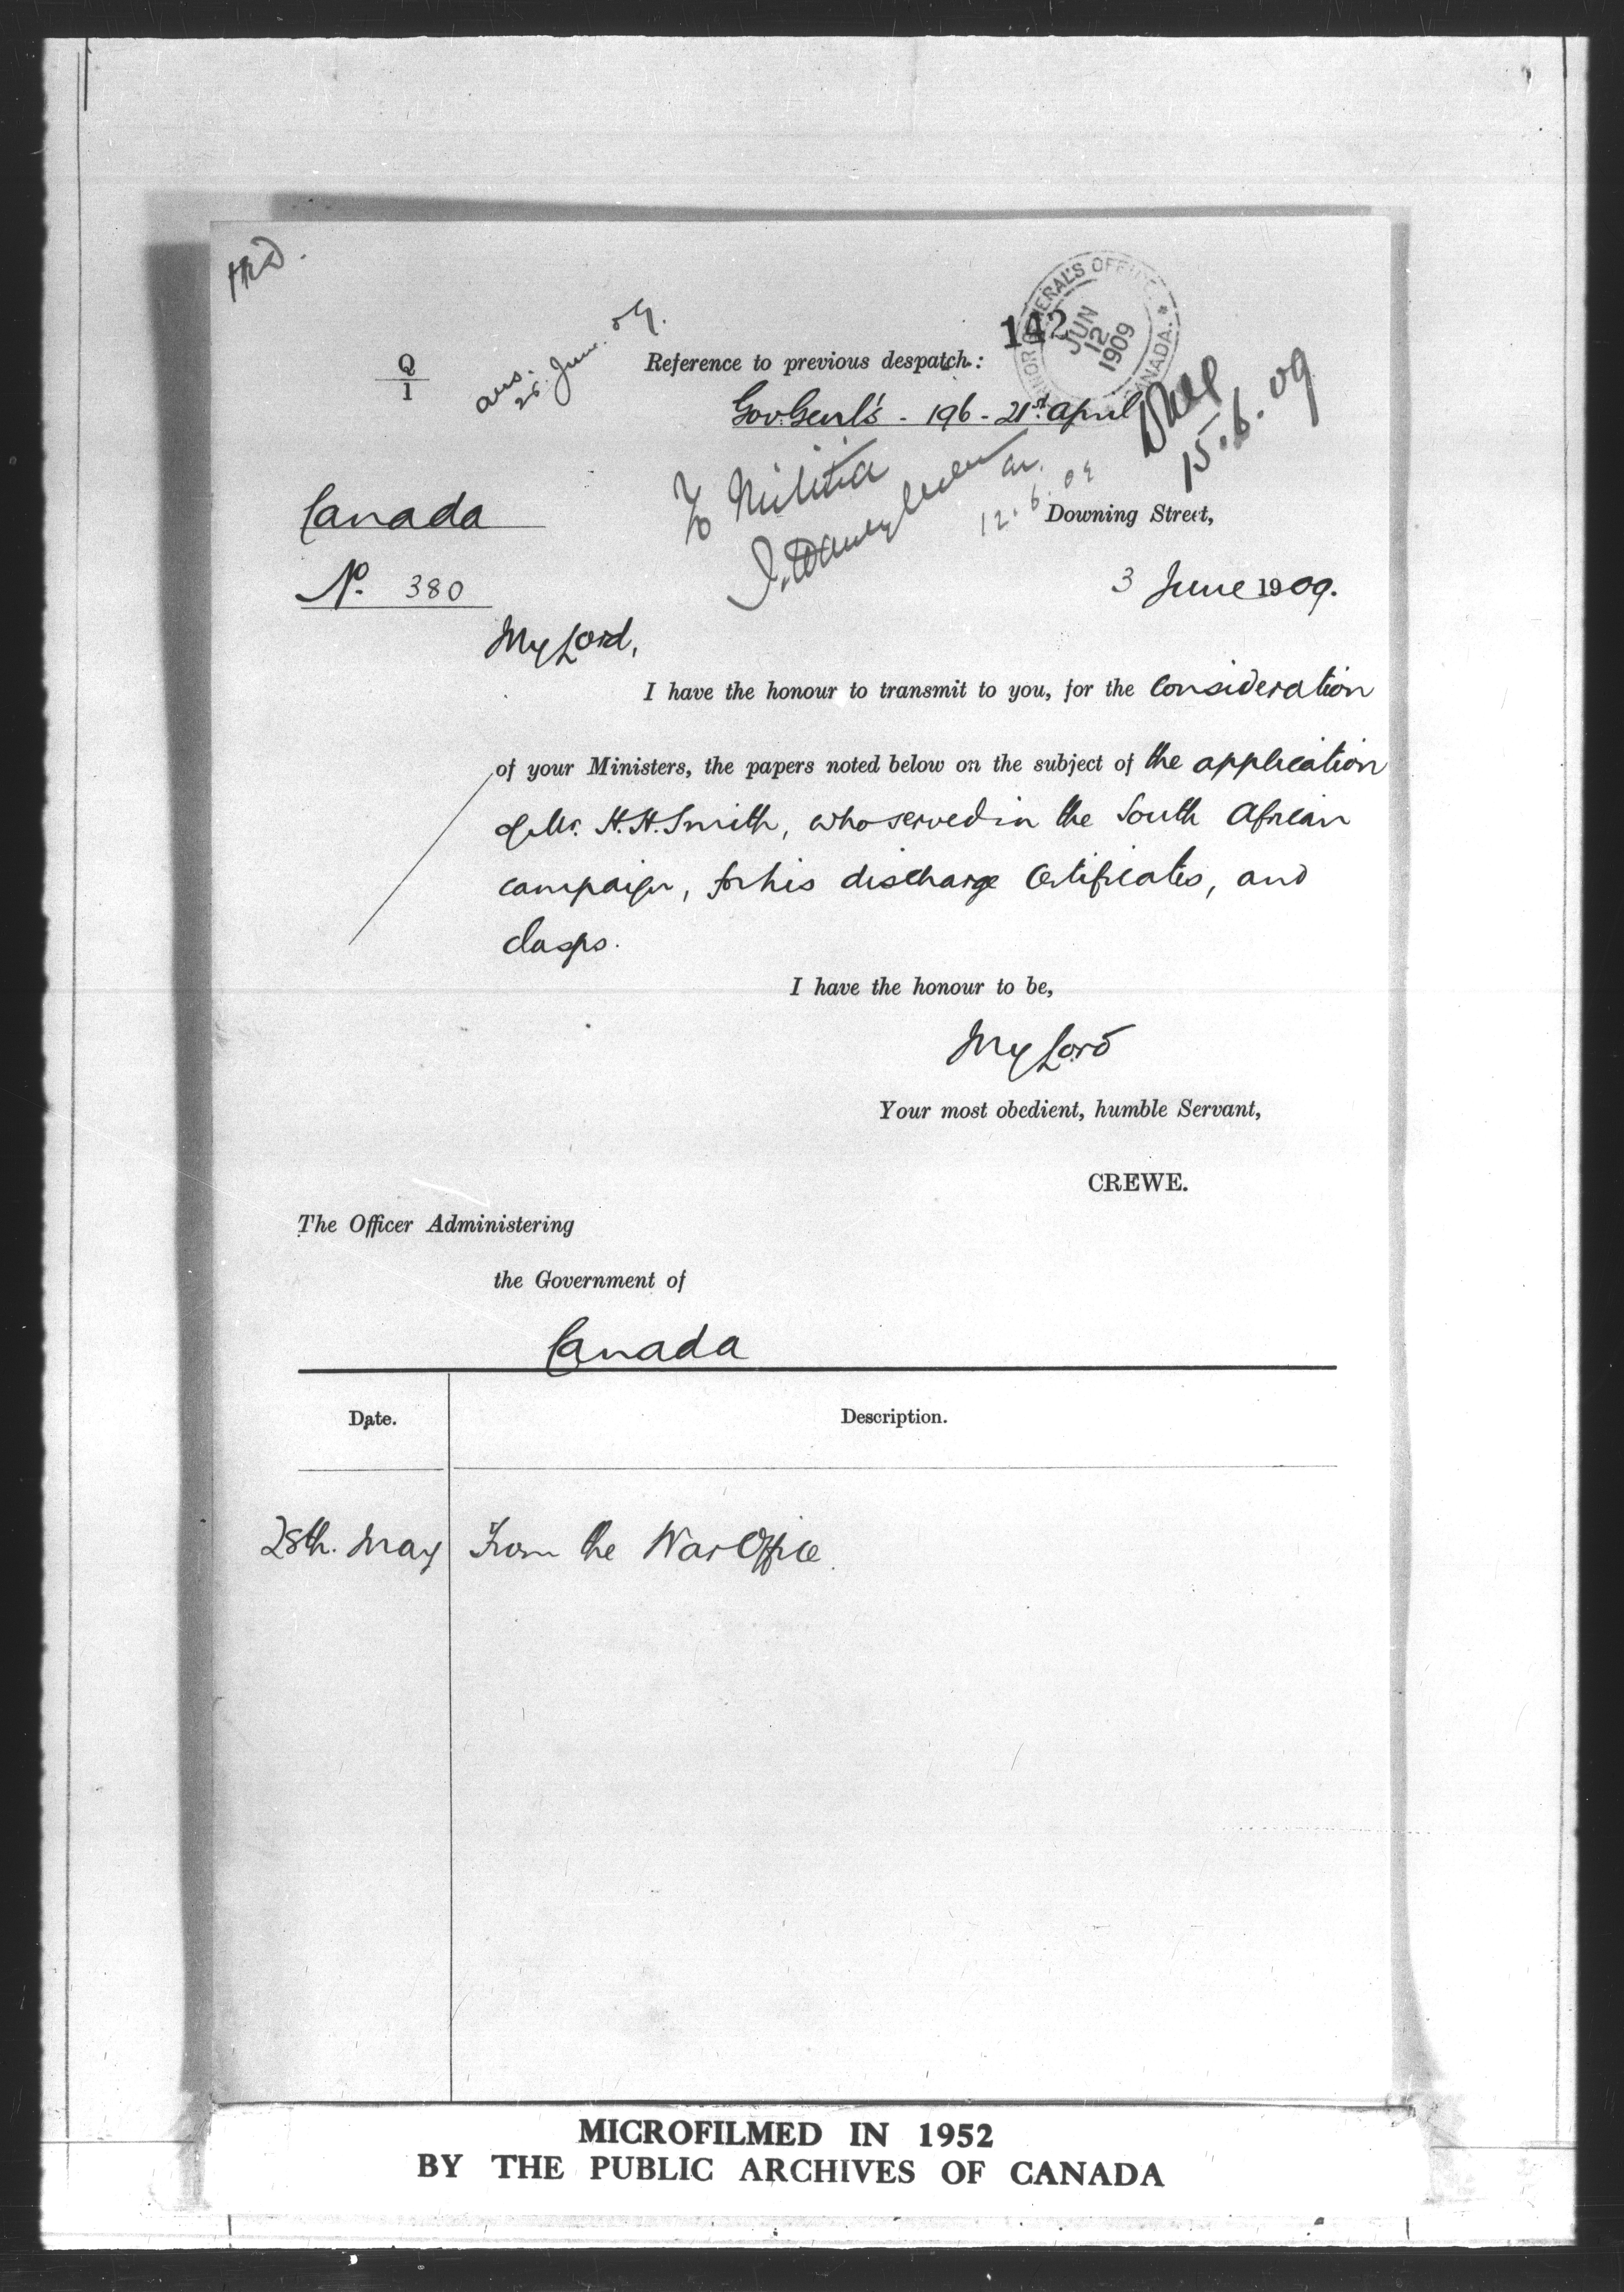 142
GOVERNOR GENERAL'S OFFICE
CANADA
JUN
12
1909
Q
1
ans.
25. June. 09.
Reference to previous despatch:
Gov. Genl's - 196 - 21st April
15.6.09
To Militia
12.6.09
Canada
Downing Street,
No. 380
3 June 1909.
My Lord,
I have the honour to transmit to you, for the consideration
of your Ministers, the papers noted below on the subject of the application
of Mr. H.H. Smith, who served in the South African
campaign, for his discharge certificates, and
clasps.
I have the honour to be,
My Lord
Your most obedient, humble Servant,
CREWE.
The Officer Administering
the Government of
Canada
Date.
Description.
28th. May
From the War Office.
MICROFILMED IN 1952
BY THE PUBLIC ARCHIVES OF CANADA